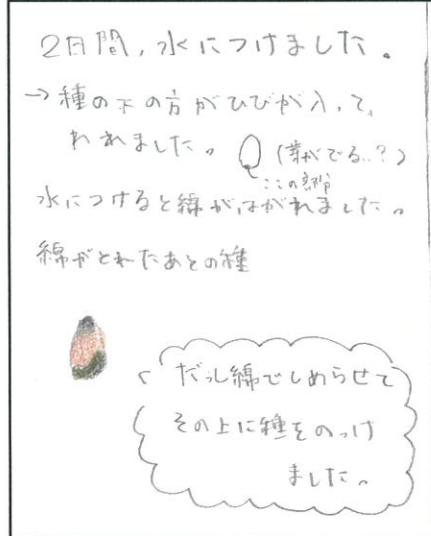 2日間，水につけました。
→種の下の方がひびが入って，
われました。(芽がでる..?)
ここの部分
水につけると綿がはがれました。
綿がとれたあとの種
だっし綿でしめらせて
その上に種をのっけ
ました。